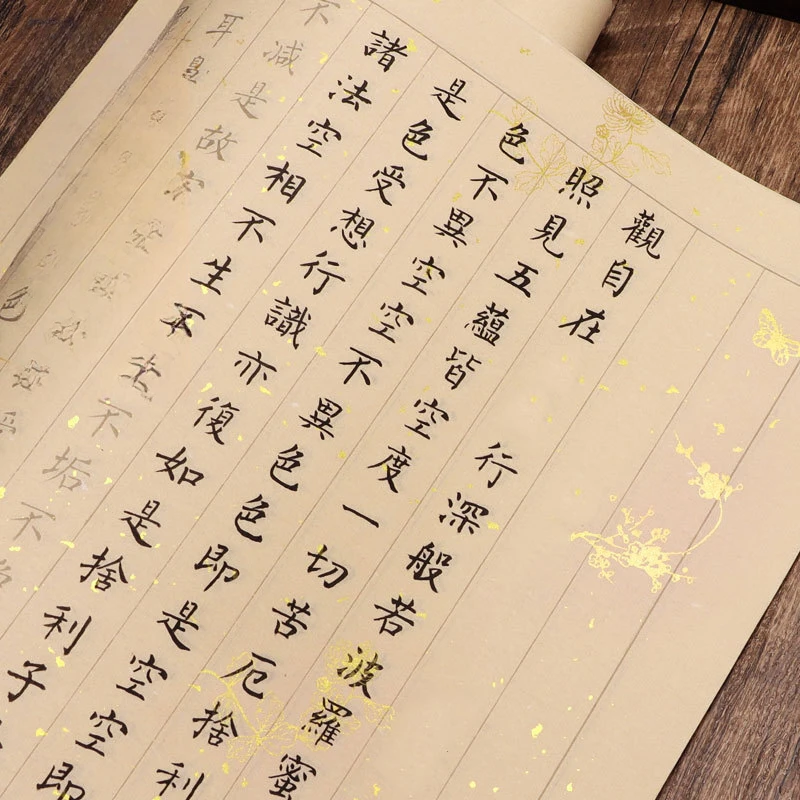 觀自在 行深般若波羅蜜
照見五蘊皆空度一切苦厄捨利
色不異空空不異色色即是空空即
是色受想行識亦復如是捨利子
諸法空相不生不不垢不
不減是故
耳
色